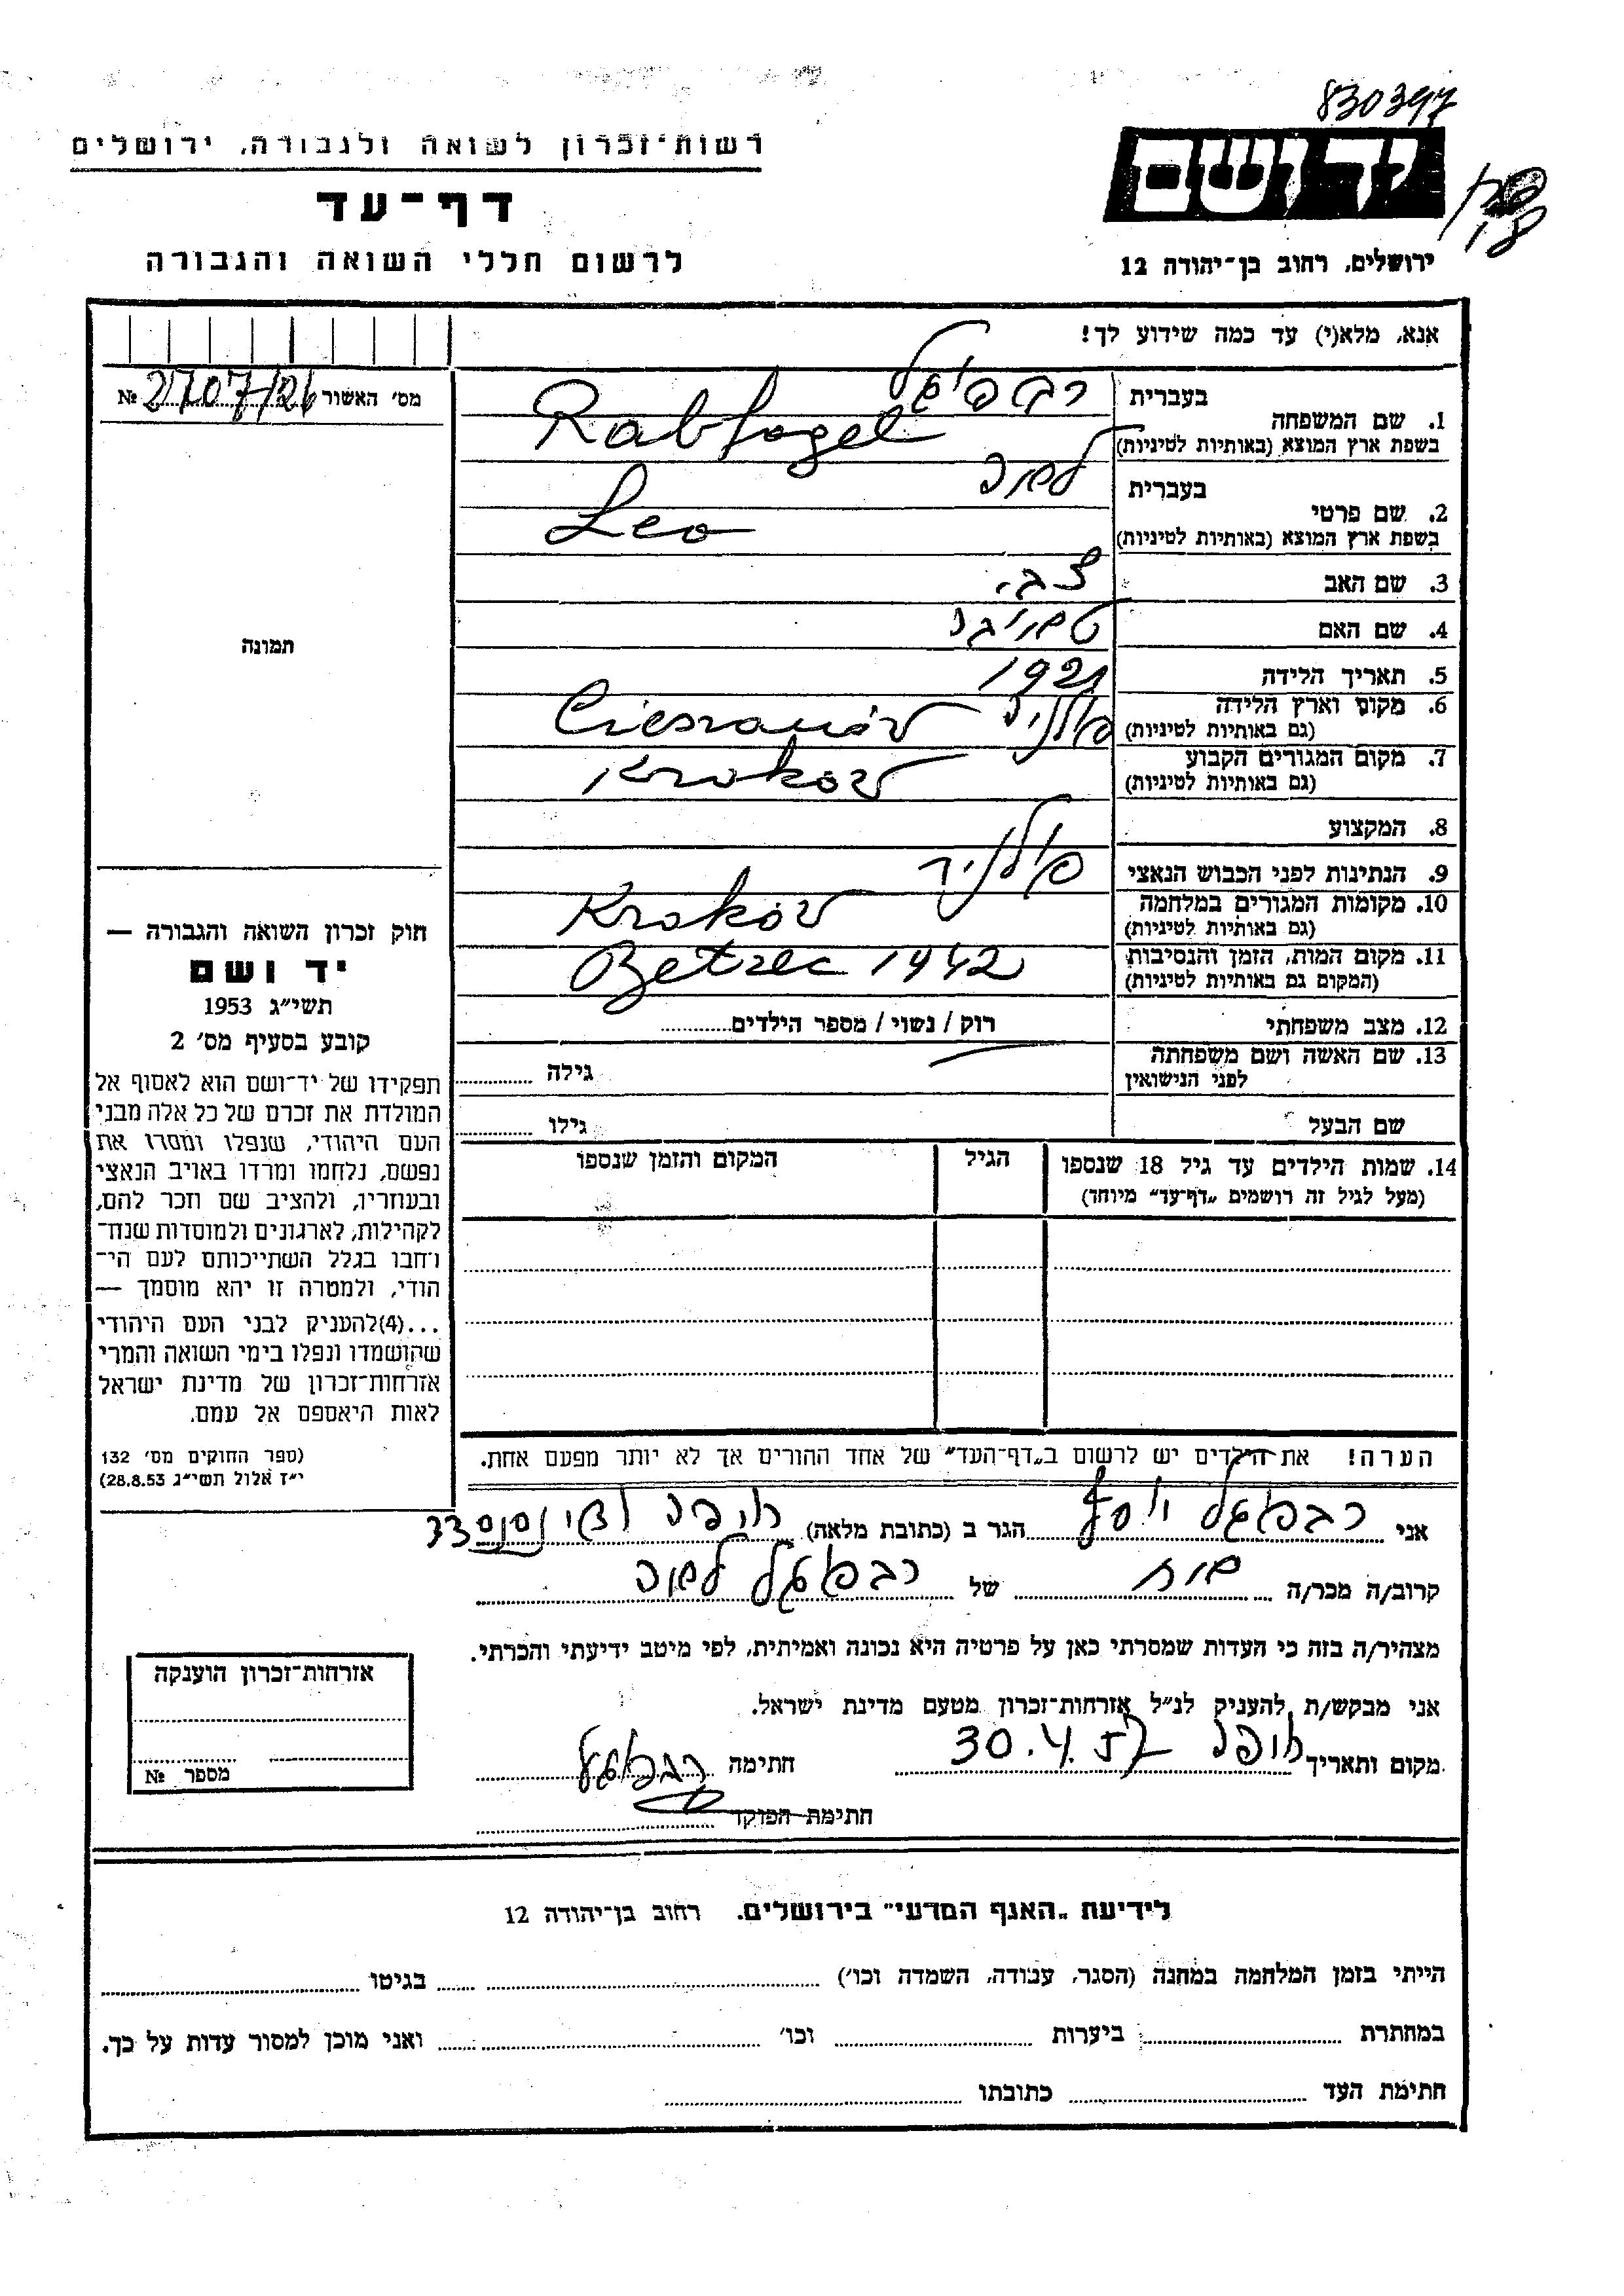 830397
רשות־זכרון לשואה ולגבורה, ירושלים
יד ושם
דף־עד
לרשום חללי השואה והגבורה
ירושלים, רחוב בן־יהודה 12
אנא, מלא(י) עד כמה שידוע לך!
מס׳ האשור № 2707/26
1. שם המשפחה
בעברית
בשפת ארץ המוצא (באותיות לטיניות)
Rabfogel
2. שם פרטי
בעברית
בשפת ארץ המוצא (באותיות לטיניות)
Leo
3. שם האב צבי
4. שם האם
5. תאריך הלידה 1921
6. מקום וארץ הלידה פולניה Cieszanów
(גם באותיות לטיניות)
7. מקום המגורים הקבוע Kraków
(גם באותיות לטיניות)
8. המקצוע
9. הנתינות לפני הכבוש הנאצי פולנית
10. מקומות המגורים במלחמה Kraków
(גם באותיות לטיניות)
11. מקום המות, הזמן והנסיבות Betzec 1942
(המקום גם באותיות לטיניות)
12. מצב משפחתי רוק / נשוי / מספר הילדים
13. שם האשה ושם משפחתה
לפני הנישואין
גילה
שם הבעל גילו
14. שמות הילדים עד גיל 18 שנספו הגיל המקום והזמן שנספו
(מעל לגיל זה רושמים „דף־עד״ מיוחד)
הערה! את הילדים יש לרשום ב„דף־העד״ של אחד ההורים אך לא יותר מפעם אחת.
תמונה
חוק זכרון השואה והגבורה —
יד ושם
תשי״ג 1953
קובע בסעיף מס׳ 2
תפקידו של יד־ושם הוא לאסוף אל
המולדת את זכרם של כל אלה מבני
העם היהודי, שנפלו ומסרו את
נפשם, נלחמו ומרדו באויב הנאצי
ובעוזריו, ולהציב שם וזכר להם,
לקהילות, לארגונים ולמוסדות שנח־
רחבו בגלל השתייכותם לעם הי־
הודי, ולמטרה זו יהא מוסמך —
...(4)להעניק לבני העם היהודי
שהושמדו ונפלו בימי השואה והמרי
אזרחות־זכרון של מדינת ישראל
לאות היאספם אל עמם.
(ספר החוקים מס׳ 132
י״ז אלול תשי״ג 28.8.53)
אני רבפוגל יוסף הגר ב (כתובת מלאה) חיפה
קרוב/ה מכר/ה של רבפוגל
מצהיר/ה בזה כי העדות שמסרתי כאן על פרטיה היא נכונה ואמיתית, לפי מיטב ידיעתי והכרתי.
אני מבקש/ת להעניק לנ״ל אזרחות־זכרון מטעם מדינת ישראל.
מקום ותאריך חיפה 30.4.57 חתימה רבפוגל
חתימת הפוקד
אזרחות־זכרון הוענקה
מספר №
לידיעת „האגף המדעי״ בירושלים. רחוב בן־יהודה 12
הייתי בזמן המלחמה במחנה (הסגר, עבודה, השמדה וכו׳) בגיטו
במחתרת ביערות וכו׳ ואני מוכן למסור עדות על כך.
חתימת העד כתובתו